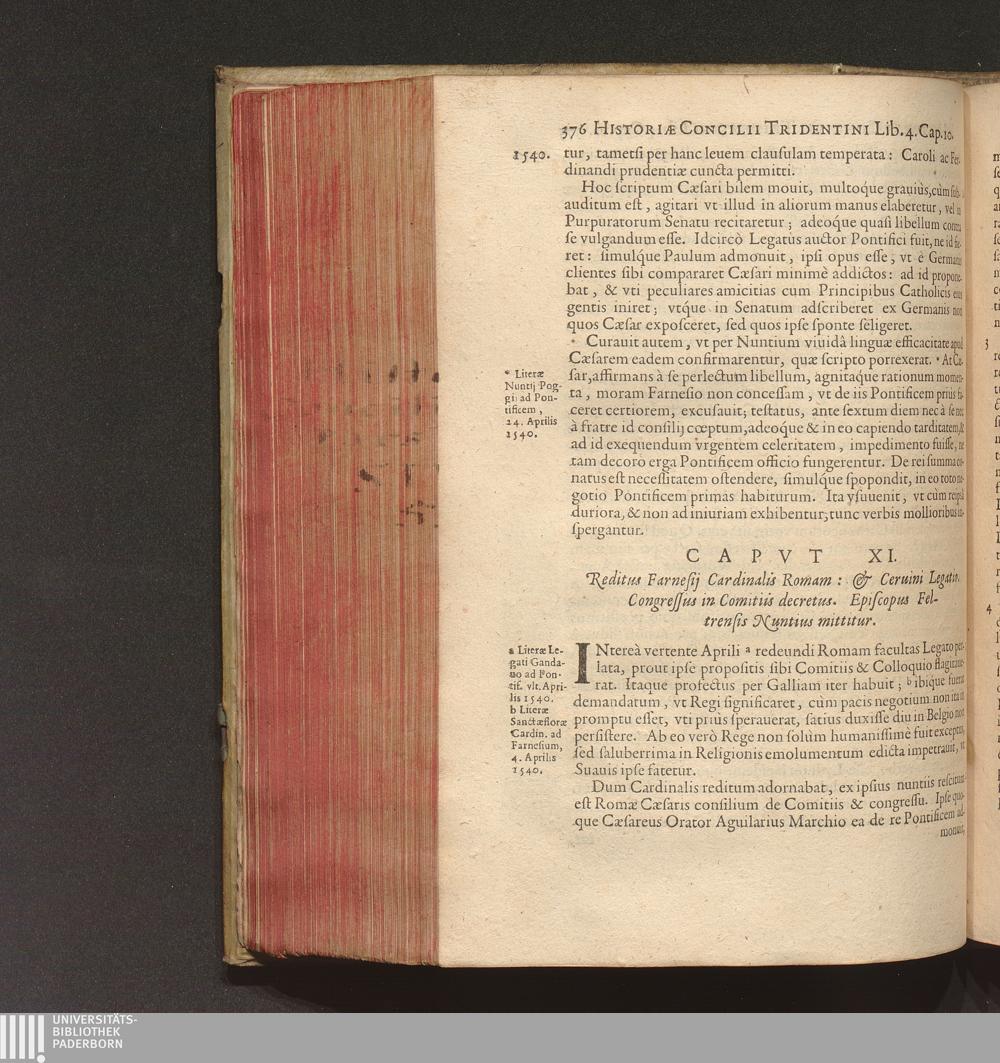 376 HISTORIÆ CONCILII TRIDENTINI Lib.4.Cap.10.
1540. tur, tametſi per hanc leuem clauſulam temperata: Caroli ac Fer-
dinandi prudentiæ cuncta permitti.
Hoc ſcriptum Cæſari bilem mouit, multoq́ue grauiùs, cùm ſub-
auditum eſt, agitari vt illud in aliorum manus elaberetur, vel in
Purpuratorum Senatu recitaretur; adeoq́ue quaſi libellum contra
ſe vulgandum eſſe. Idcircò Legatus auctor Pontifici fuit, ne id fie-
ret: ſimulq́ue Paulum admonuit, ipſi opus eſſe, vt è Germania
clientes ſibi compararet Cæſari minimè addictos: ad id propone-
bat, & vti peculiares amicitias cum Principibus Catholicis eius
gentis iniret; vtq́ue in Senatum adſcriberet ex Germanis non
quos Cæſar expoſceret, ſed quos ipſe ſponte ſeligeret.
* Curauit autem, vt per Nuntium viuidâ linguæ efficacitate apud
Cæſarem eadem confirmarentur, quæ ſcripto porrexerat. * At Cæ-
ſar, affirmans à ſe perlectum libellum, agnitaque rationum momen-
ta, moram Farneſio non conceſſam, vt de iis Pontificem priùs fa-
ceret certiorem, excuſauit; teſtatus, ante ſextum diem nec à ſe nec
à fratre id conſilij cœptum, adeoque & in eo capiendo tarditatem, &
ad id exequendum vrgentem celeritatem, impedimento fuiſſe, ne
tam decoro erga Pontificem officio fungerentur. De rei ſumma co-
natus eſt neceſſitatem oſtendere, ſimulq́ue ſpopondit, in eo toto ne-
gotio Pontificem primas habiturum. Ita vſuuenit, vt cùm reipsâ
duriora, & non ad iniuriam exhibentur, tunc verbis mollioribus in-
ſpergantur.
* Literæ
Nuntij Pog-
gij ad Pon-
tificem,
24. Aprilis
1540.
CAPVT XI.
Reditus Farneſij Cardinalis Romam: & Ceruini Legatio.
Congreſſus in Comitiis decretus. Epiſcopus Fel-
trenſis Nuntius mittitur.
INtereà vertente Aprili a redeundi Romam facultas Legato per-
lata, prout ipſe propoſitis ſibi Comitiis & Colloquio flagitaue-
rat. Itaque profectus per Galliam iter habuit; b ibique fuerat
demandatum, vt Regi ſignificaret, cùm pacis negotium non ita in
promptu eſſet, vti priùs ſperauerat, ſatius duxiſſe diu in Belgio non
perſiſtere. Ab eo verò Rege non ſolùm humaniſſimè fuit exceptus,
ſed ſaluberrima in Religionis emolumentum edicta impetrauit, vt
Suauis ipſe fatetur.
a Literæ Le-
gati Ganda-
uo ad Pon-
tif. vlt. Apri-
lis 1540.
b Literæ
Sanctæfloræ
Cardin. ad
Farneſium,
4. Aprilis
1540.
Dum Cardinalis reditum adornabat, ex ipſius nuntiis reſcitum
eſt Romæ Cæſaris conſilium de Comitiis & congreſſu. Ipſe quo-
que Cæſareus Orator Aguilarius Marchio ea de re Pontificem ad-
monuit,
3
4
UNIVERSITÄTS-
BIBLIOTHEK
PADERBORN